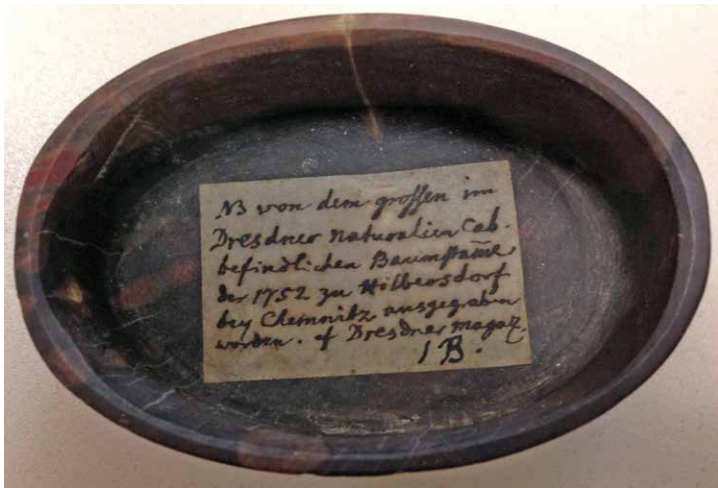 NB von dem grossen im
Dresdner Naturalien Cab.
befindlichen Baumstam̄e
der 1752 zu Hilbersdorf
bey Chemnitz ausgegraben
worden. cf Dresdner magaz.
1 B.